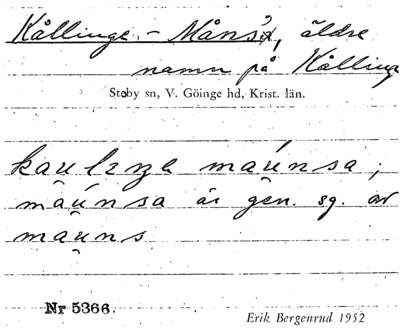 Kållinge - Måns's, äldre
namn på Kållinge
Stoby sn, V. Göinge hd, Krist. län.
kaulinge maúnsa;
maúnsa är gen. sg. av
mauns
Nr 5366.
Erik Bergenrud 1952